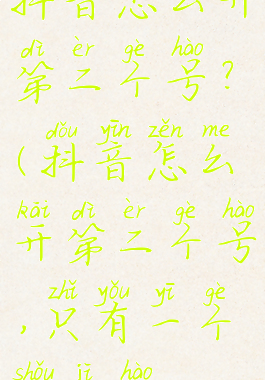 抖音怎么开
dì èr gè hào
第二个号?
dǒu yīn zěn me
(抖音怎么
kāi dì èr gè hào
开第二个号
zhǐ yǒu yī gè
,只有一个
shǒu jī hào